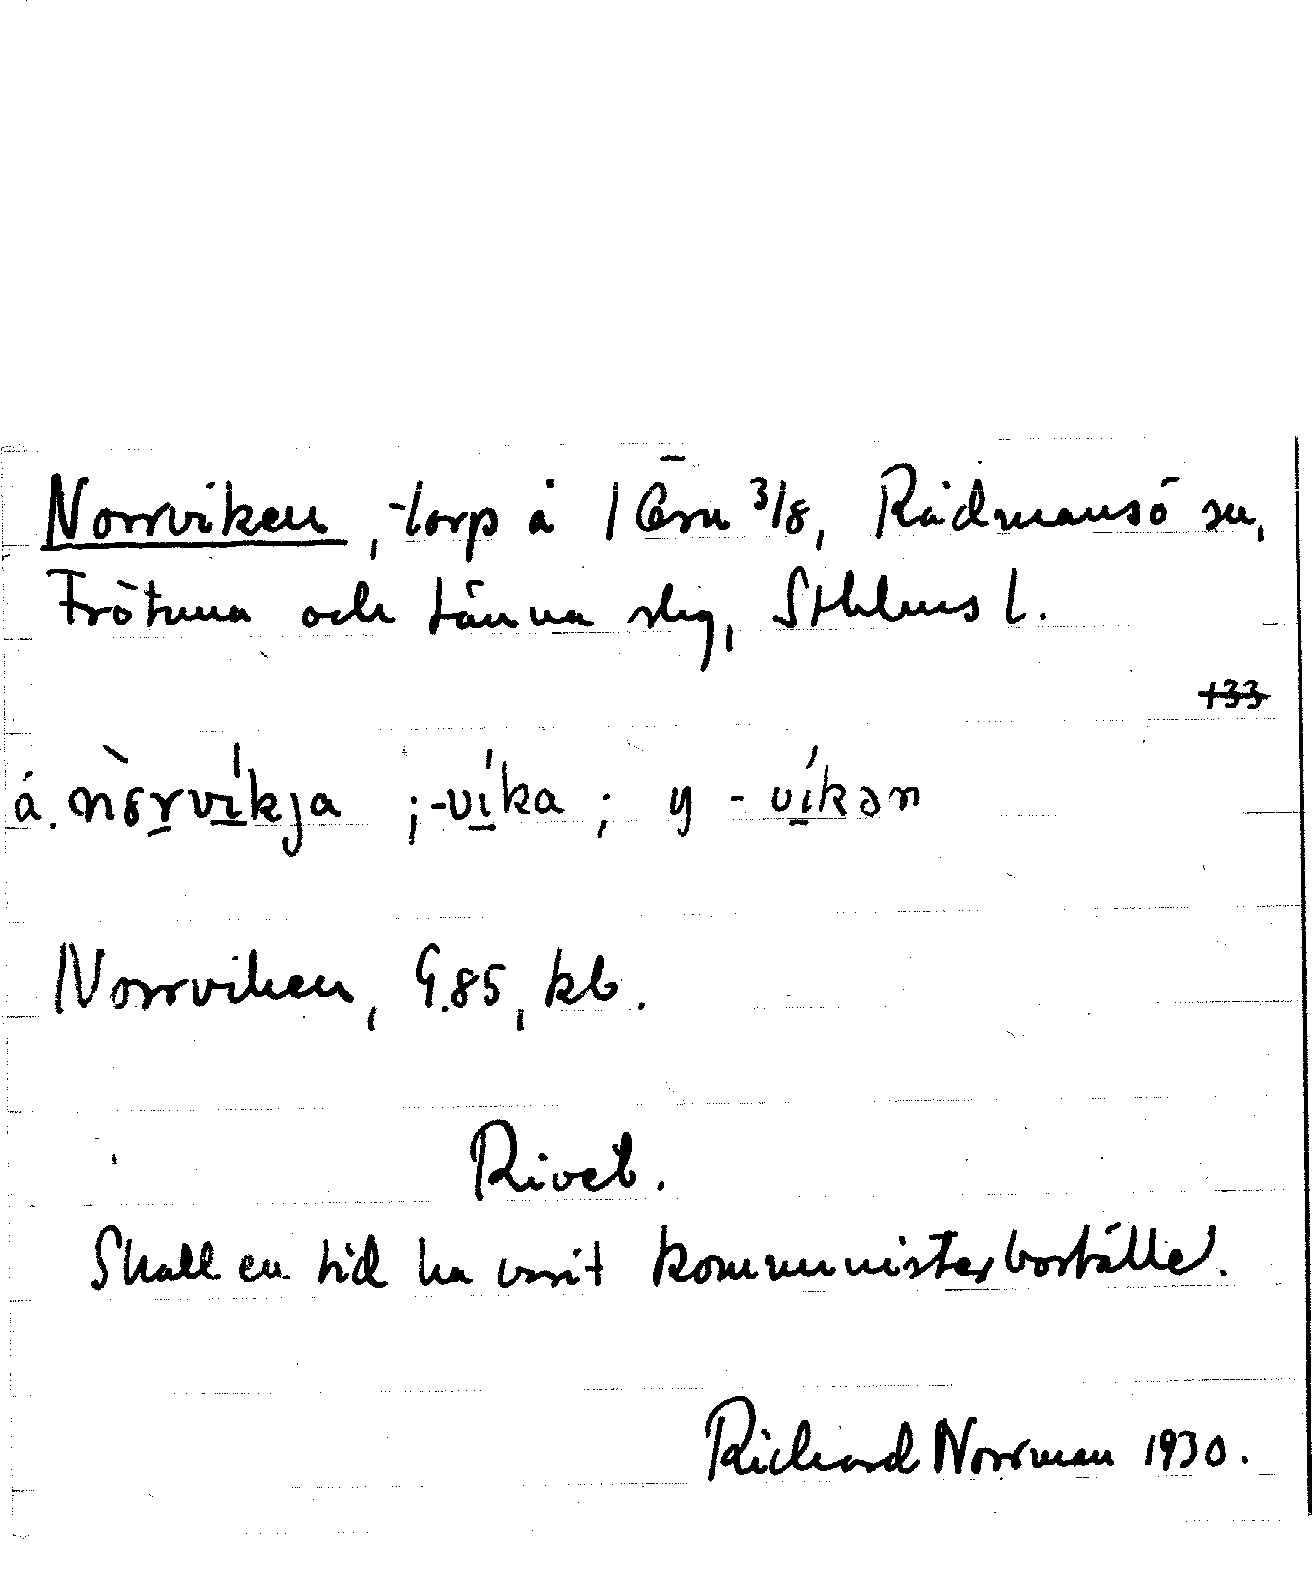 Norrviken, torp å 1 Ösn 3/8, Rådmansö sn,
Frötuna och Länna slg, Sthlms l.
133
å. nòrvíkja ;-víka ; y -víkən
Norrviken, G.85, kb.
Rivet.
Skall en tid ha varit kommunisterboställe.
Richard Norrman 1930.